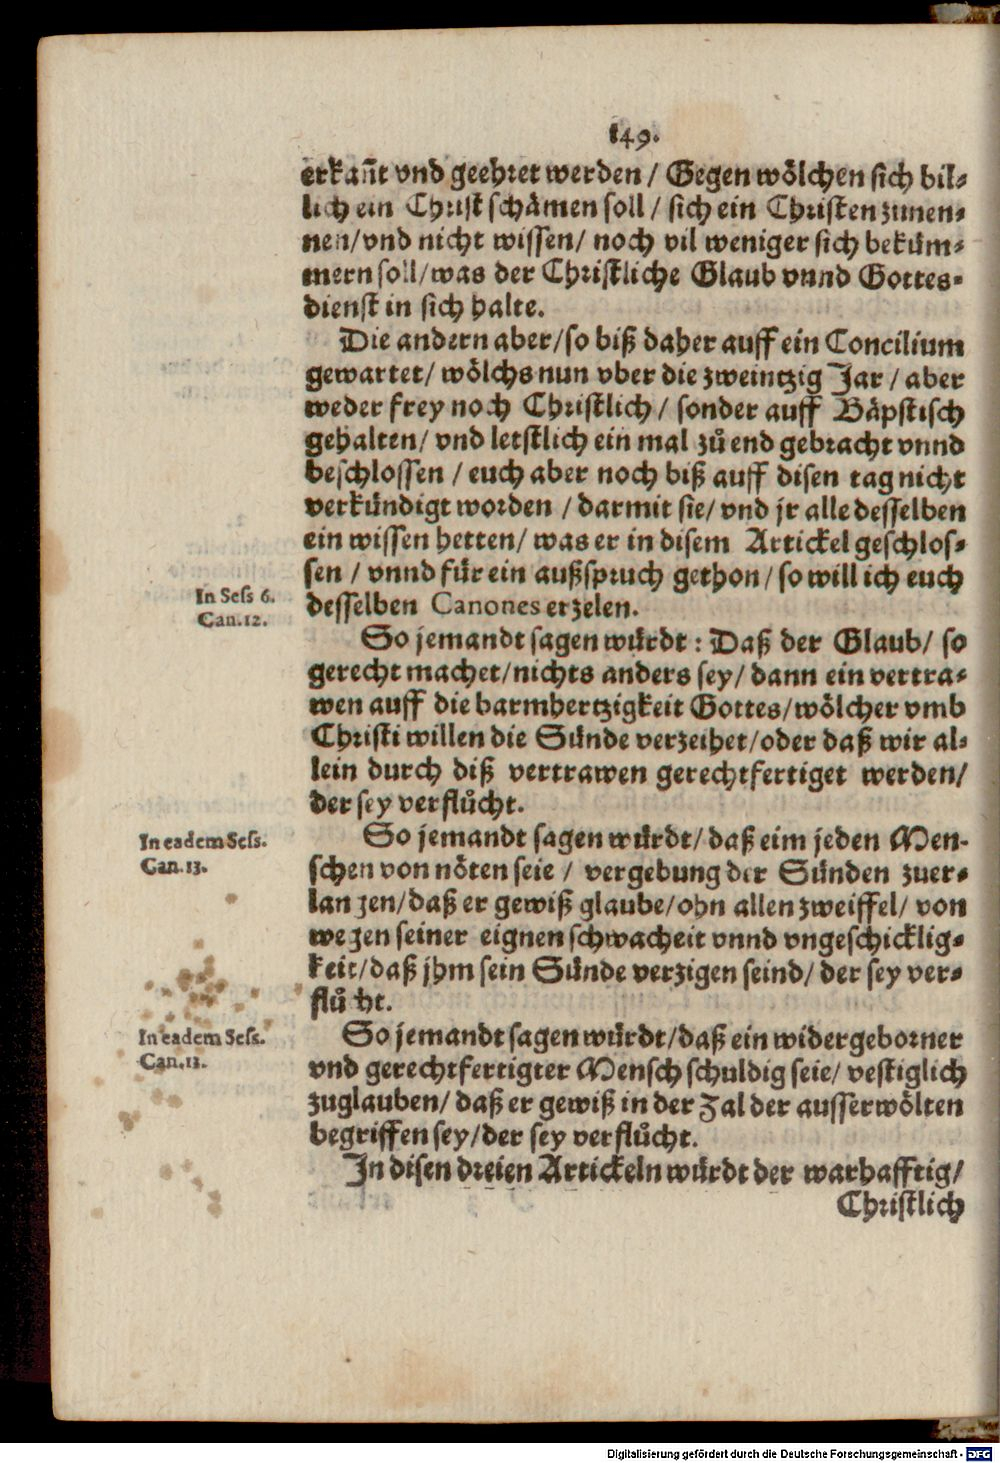 149.
erkañt vnd geehret werden / Gegen wölchen sich bil-
lich ein Christ schämen soll / sich ein Christen zunen-
nen/vnd nicht wissen/ noch vil weniger sich beküm-
mern soll/was der Christliche Glaub vnnd Gottes-
dienst in sich halte.
Die andern aber/so biß daher auff ein Concilium
gewartet/ wölchs nun vber die zweintzig Jar / aber
weder frey noch Christlich / sonder auff Bäpstisch
gehalten/ vnd letstlich ein mal zů end gebracht vnnd
beschlossen / euch aber noch biß auff disen tag nicht
verkündigt worden / darmit sie/ vnd jr alle desselben
ein wissen hetten/ was er in disem Artickel geschlos-
sen / vnnd für ein außspruch gethon/ so will ich euch
In Sess 6.
Can.12.
desselben Canones erzelen.
So jemandt sagen würdt : Daß der Glaub/ so
gerecht machet/nichts anders sey/ dann ein vertra-
wen auff die barmhertzigkeit Gottes/wölcher vmb
Christi willen die Sünde verzeihet/oder daß wir al-
lein durch diß vertrawen gerechtfertiget werden/
der sey verflůcht.
In eadem Sess.
Can.13.
So jemandt sagen würdt/daß eim jeden Men-
schen von nöten seie / vergebung der Sünden zuer-
langen/daß er gewiß glaube/ohn allen zweiffel/ von
wegen seiner eignen schwacheit vnnd vngeschicklig-
keit/daß jhm sein Sünde verzigen seind/ der sey ver-
flůcht.
In eadem Sess.
Can.15.
So jemandt sagen würdt/daß ein widergeborner
vnd gerechtfertigter Mensch schuldig seie/ vestiglich
zuglauben/ daß er gewiß in der Zal der ausserwölten
begriffen sey/der sey verflůcht.
In disen dreien Artickeln würdt der warhafftig/
Christlich
Digitalisierung gefördert durch die Deutsche Forschungsgemeinschaft - DFG